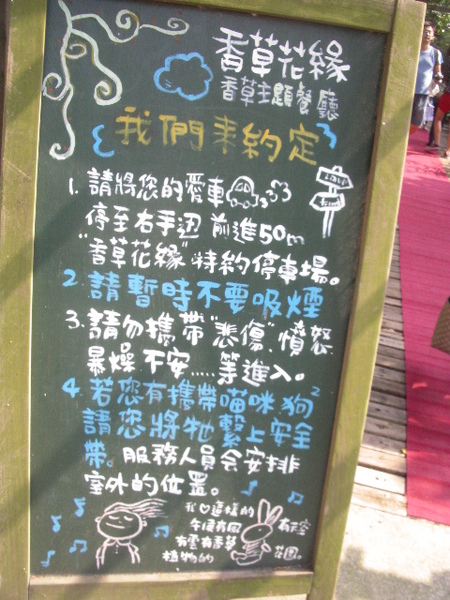 香草花緣
香草主題餐廳
我們來約定
1. 請將您的愛車
停至右手边 前進50m
"香草花緣"特約停車場。
2. 請暫時不要吸煙
3. 請勿攜帶"悲傷", 憤怒
暴燥 不安.....等進入。
4. 若您有攜帶喵咪, 狗
請您將牠繫上安全
帶。服務人員会安排
室外的位置。
我 這樣的
午後有風 有天空
有雲有香草
植物的 花園。